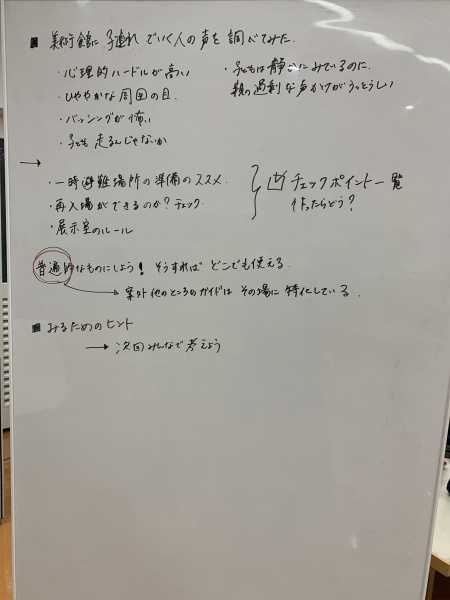 ■ 美術館に子連れでいく人の声を調べてみた.
・心理的ハードルが高い
・ひややかな周囲の目.
・バッシングが怖い
・子ども走るんじゃないか
・子どもは静かにみているのに.
親の過剰な声かけがうっとうしい
→
・一時避難場所の準備のススメ.
・再入場ができるのか?チェック.
・展示室のルール
チェックポイント一覧
作ったらどう?
普遍的なものにしよう! そうすれば どこでも使える.
→ 案外他のところのガイドは その場に 特化している.
■ みるためのヒント
→ 次回みんなで考えよう